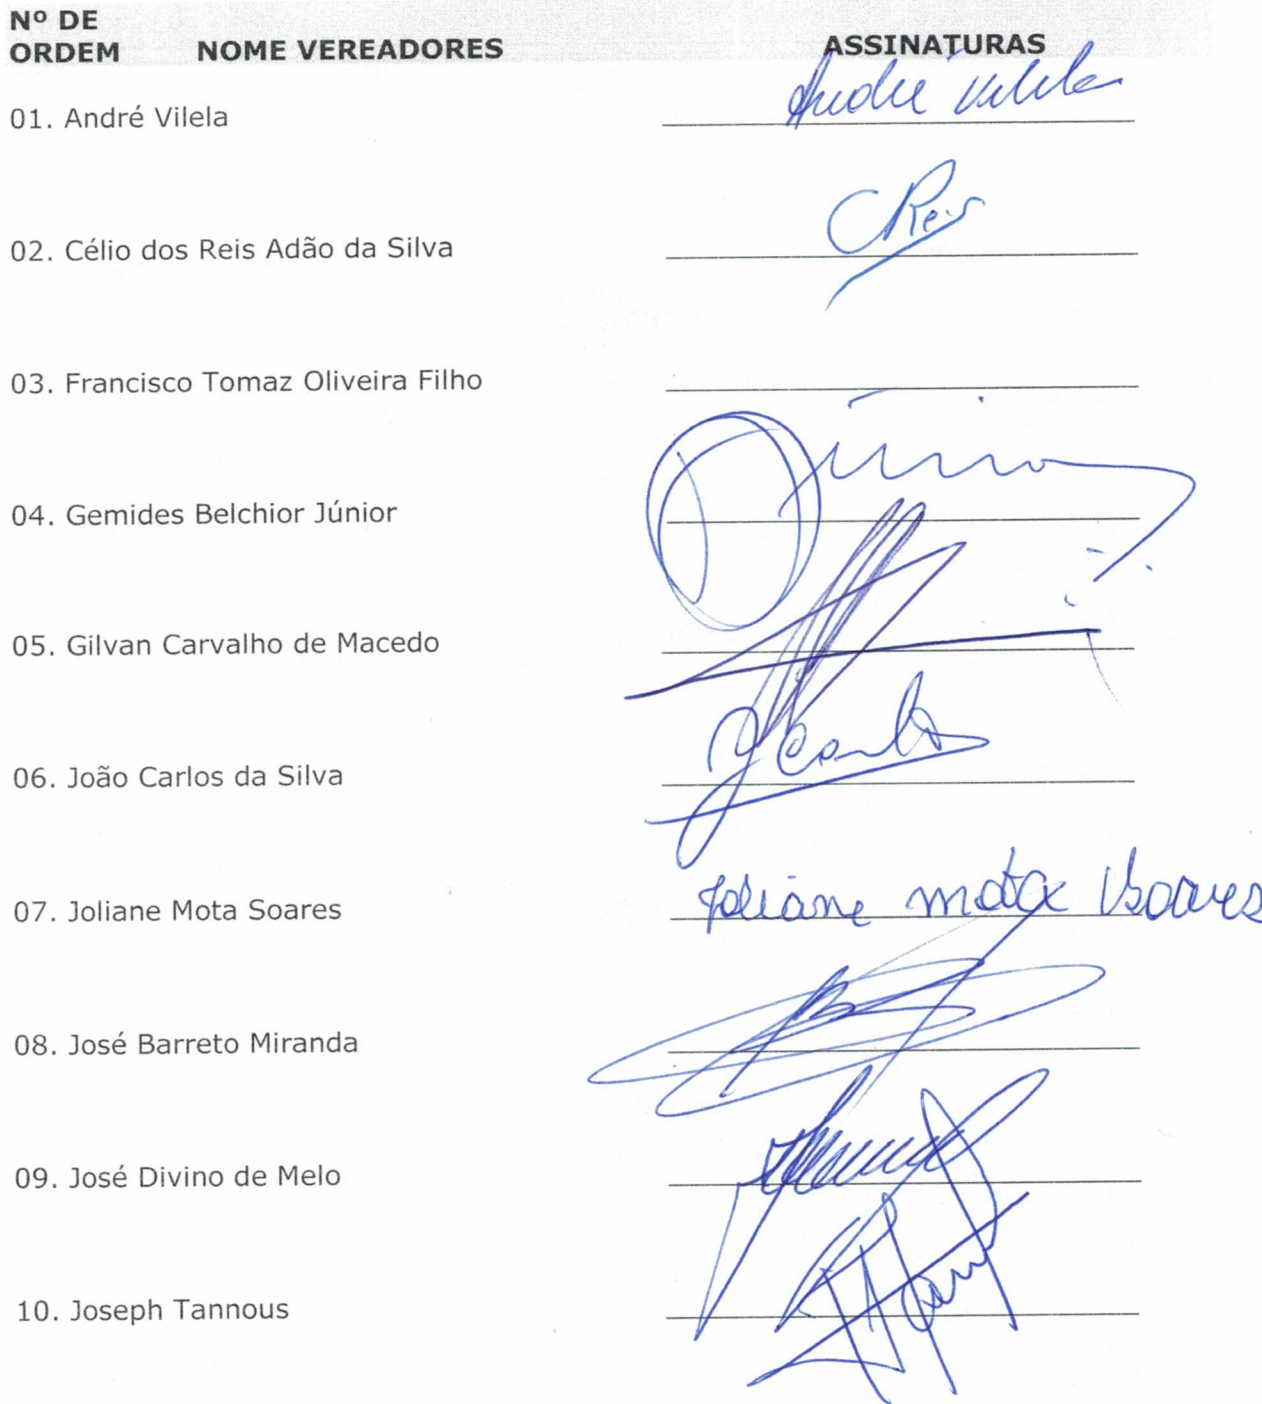 Nº DE
ORDEM NOME VEREADORES ASSINATURAS
01. André Vilela André Vilela
02. Célio dos Reis Adão da Silva CReis
03. Francisco Tomaz Oliveira Filho
04. Gemides Belchior Júnior Júnior
05. Gilvan Carvalho de Macedo
06. João Carlos da Silva JCarlos
07. Joliane Mota Soares Joliane mota Soares
08. José Barreto Miranda
09. José Divino de Melo
10. Joseph Tannous